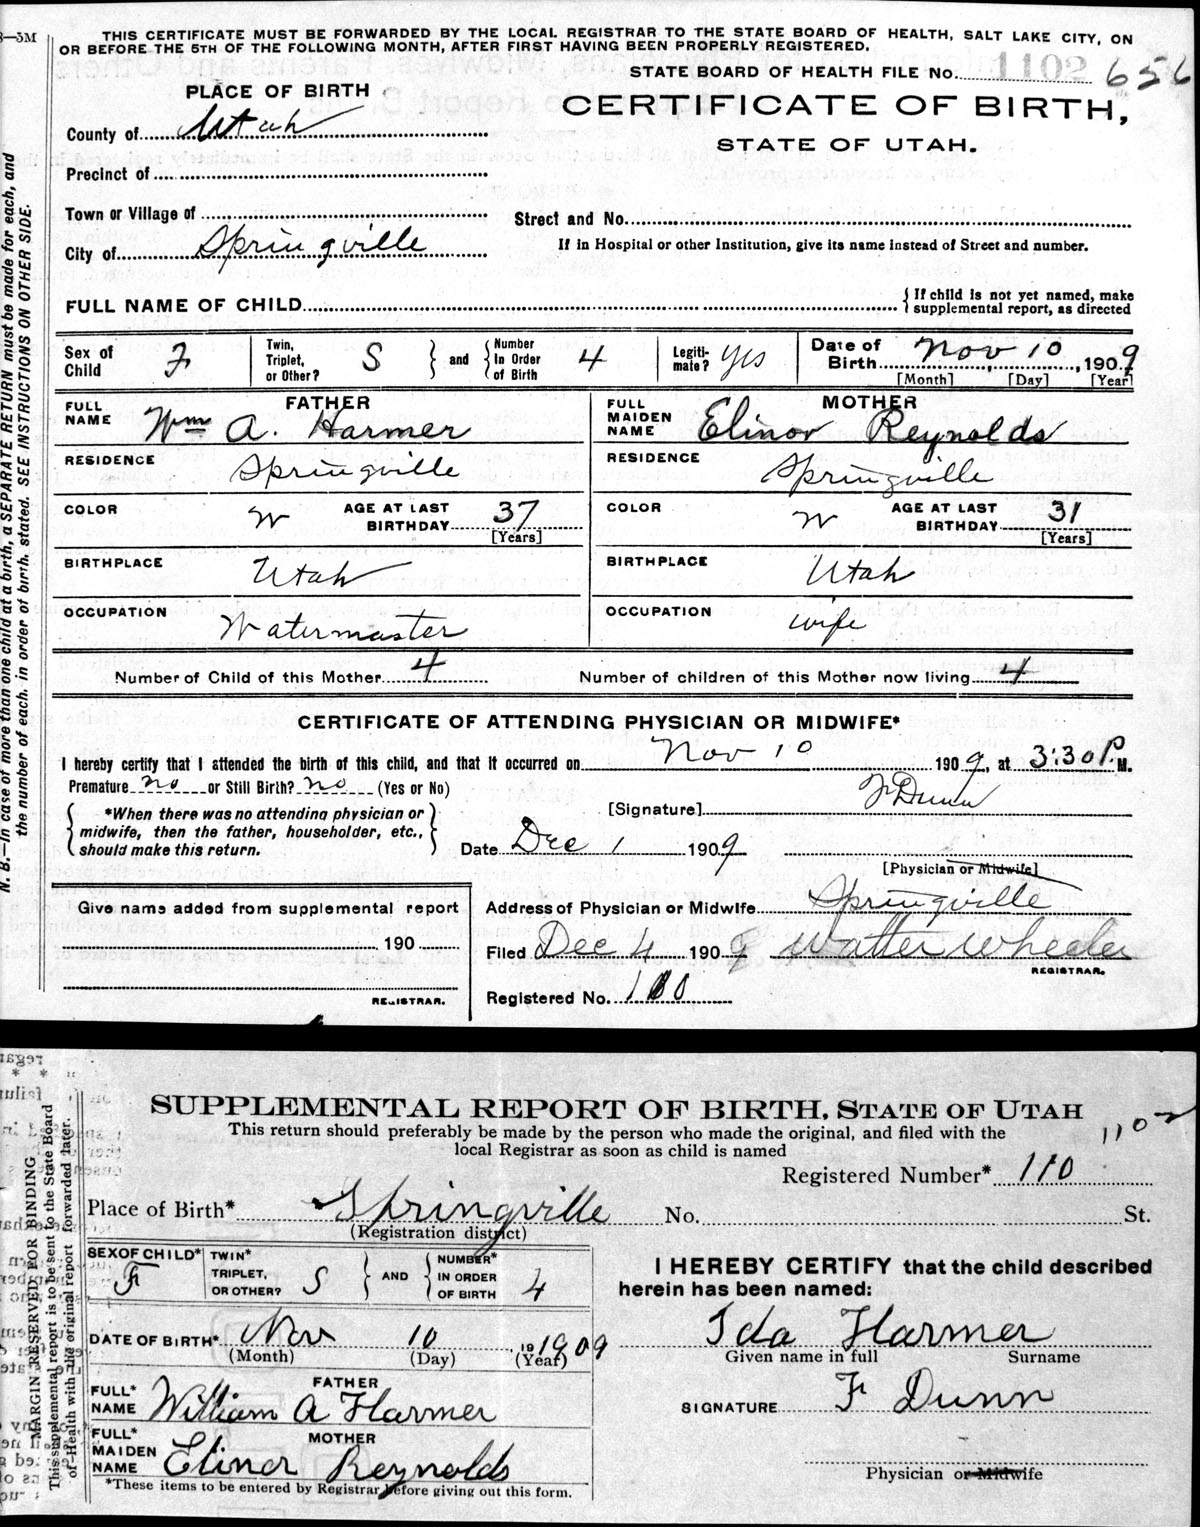 8—3M
THIS CERTIFICATE MUST BE FORWARDED BY THE LOCAL REGISTRAR TO THE STATE BOARD OF HEALTH, SALT LAKE CITY, ON
OR BEFORE THE 5TH OF THE FOLLOWING MONTH, AFTER FIRST HAVING BEEN PROPERLY REGISTERED.
STATE BOARD OF HEALTH FILE No. 1102 656
PLACE OF BIRTH
CERTIFICATE OF BIRTH,
STATE OF UTAH.
County of Utah
Precinct of
Town or Village of
Street and No.
City of Springville
If in Hospital or other Institution, give its name instead of Street and number.
FULL NAME OF CHILD
{ If child is not yet named, make
supplemental report, as directed
Sex of Child F Twin, Triplet, or Other? S } and { Number In Order of Birth 4 Legiti-mate? Yes Date of Birth Nov 10, 1909
[Month] [Day] [Year]
FATHER
FULL NAME Wm A. Harmer
MOTHER
FULL MAIDEN NAME Elinor Reynolds
RESIDENCE Springville
RESIDENCE Springville
COLOR W AGE AT LAST BIRTHDAY 37 [Years]
COLOR W AGE AT LAST BIRTHDAY 31 [Years]
BIRTHPLACE Utah
BIRTHPLACE Utah
OCCUPATION Watermaster
OCCUPATION wife
Number of Child of this Mother 4 Number of children of this Mother now living 4
CERTIFICATE OF ATTENDING PHYSICIAN OR MIDWIFE*
I hereby certify that I attended the birth of this child, and that it occurred on Nov 10 1909, at 3:30 P. M.
Premature no or Still Birth? no (Yes or No)
[Signature] F Dunn
{ *When there was no attending physician or
midwife, then the father, householder, etc.,
should make this return. }
Date Dec 1 1909
[Physician or Midwife]
Give name added from supplemental report
190
REGISTRAR.
Address of Physician or Midwife Springville
Filed Dec 4 1909 Walter Wheeler
REGISTRAR.
Registered No.
N. B.—In case of more than one child at a birth, a SEPARATE RETURN must be made for each, and
the number of each. in order of birth. stated. SEE INSTRUCTIONS ON OTHER SIDE.
SUPPLEMENTAL REPORT OF BIRTH, STATE OF UTAH
This return should preferably be made by the person who made the original, and filed with the
local Registrar as soon as child is named
1102
Registered Number* 110
Place of Birth* Springville No. St.
(Registration district)
SEX OF CHILD* F TWIN* TRIPLET, OR OTHER? S } AND { NUMBER* IN ORDER OF BIRTH 4
DATE OF BIRTH* Nov 10, 19 1909
(Month) (Day) (Year)
FATHER
FULL* NAME William A Harmer
MOTHER
FULL* MAIDEN NAME Elinor Reynolds
*These items to be entered by Registrar before giving out this form.
I HEREBY CERTIFY that the child described
herein has been named:
Ida Harmer
Given name in full Surname
SIGNATURE F Dunn
Physician or Midwife
MARGIN RESERVED FOR BINDING
This supplemental report is to be sent to the State Board
of Health with the original report forwarded later.